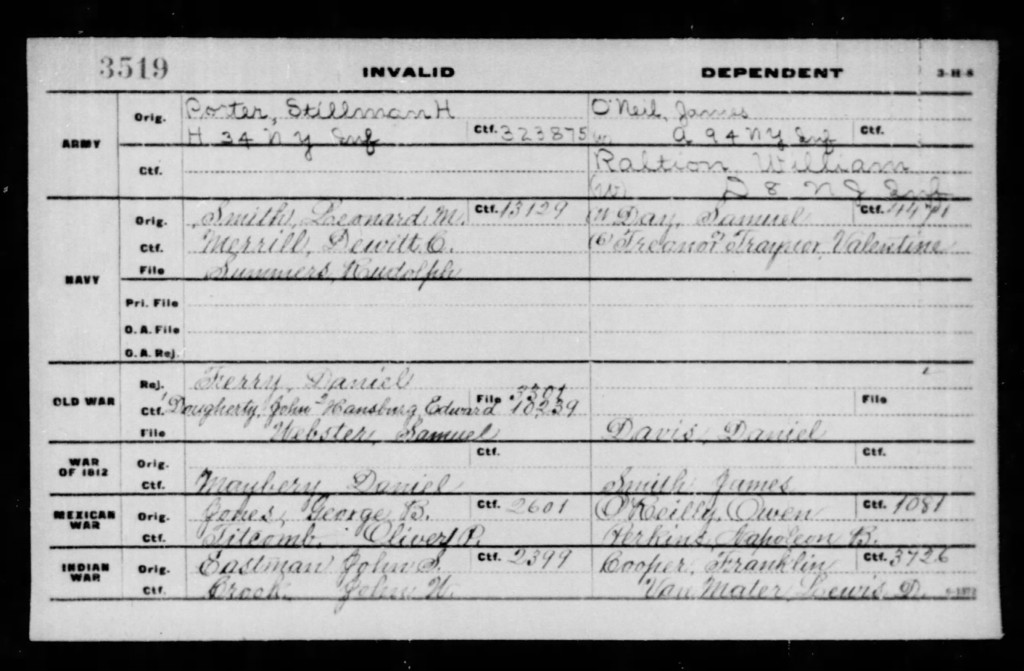 3519 INVALID DEPENDENT 3-H-8
ARMY Orig. Porter, Stillman H O'Neil, James
H 34 N Y Inf Ctf. 323875 W G 94 N Y Inf Ctf.
Ctf. Raltion William
(W) D 8 N J Inf
NAVY Orig. Smith, Leonard M. Ctf. 13129 Day, Samuel Ctf. 4471
Ctf. Merrill, Dewitt C. Treanor Traynor, Valentine
File Summers, Rudolph
Pri. File
O.A. File
O.A. Rej.
OLD WAR Rej. Ferry, Daniel
Ctf. 1 Dougherty, John 2 Hansburg, Edward File 3301 10239 File
File Webster, Samuel Davis, Daniel
WAR OF 1812 Orig. Ctf. Ctf.
Ctf. Maybery Daniel Smith James
MEXICAN WAR Orig. Jones, George B. Ctf. 2601 O'Reilly, Owen Ctf. 1081
Ctf. Titcomb, Oliver P. Perkins, Napoleon B.
INDIAN WAR Orig. Eastman John S. Ctf. 2399 Cooper, Franklin Ctf. 3726
Ctf. Crook, John W. Van Mater, Lewis D.